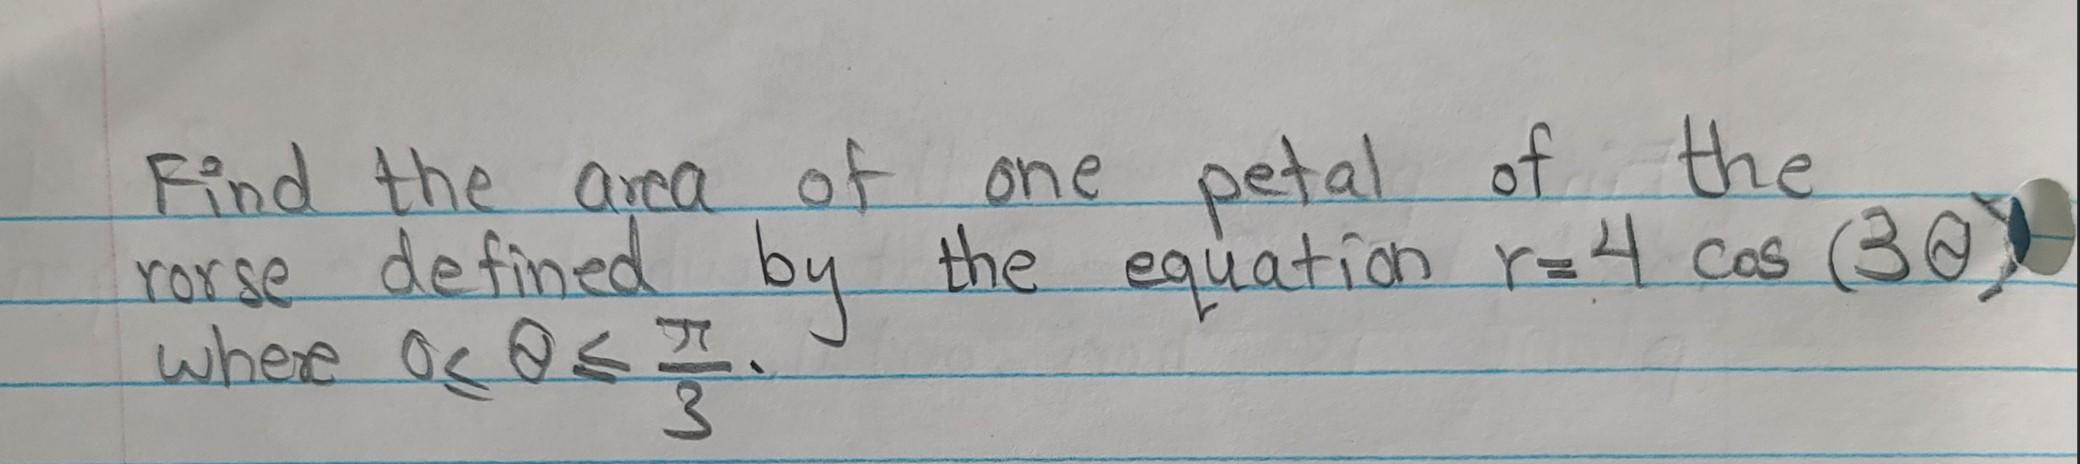 Find the area of one petal of the
rorse defined by the equation r=4 cos (3θ)
where 0≤ θ ≤ π/3.